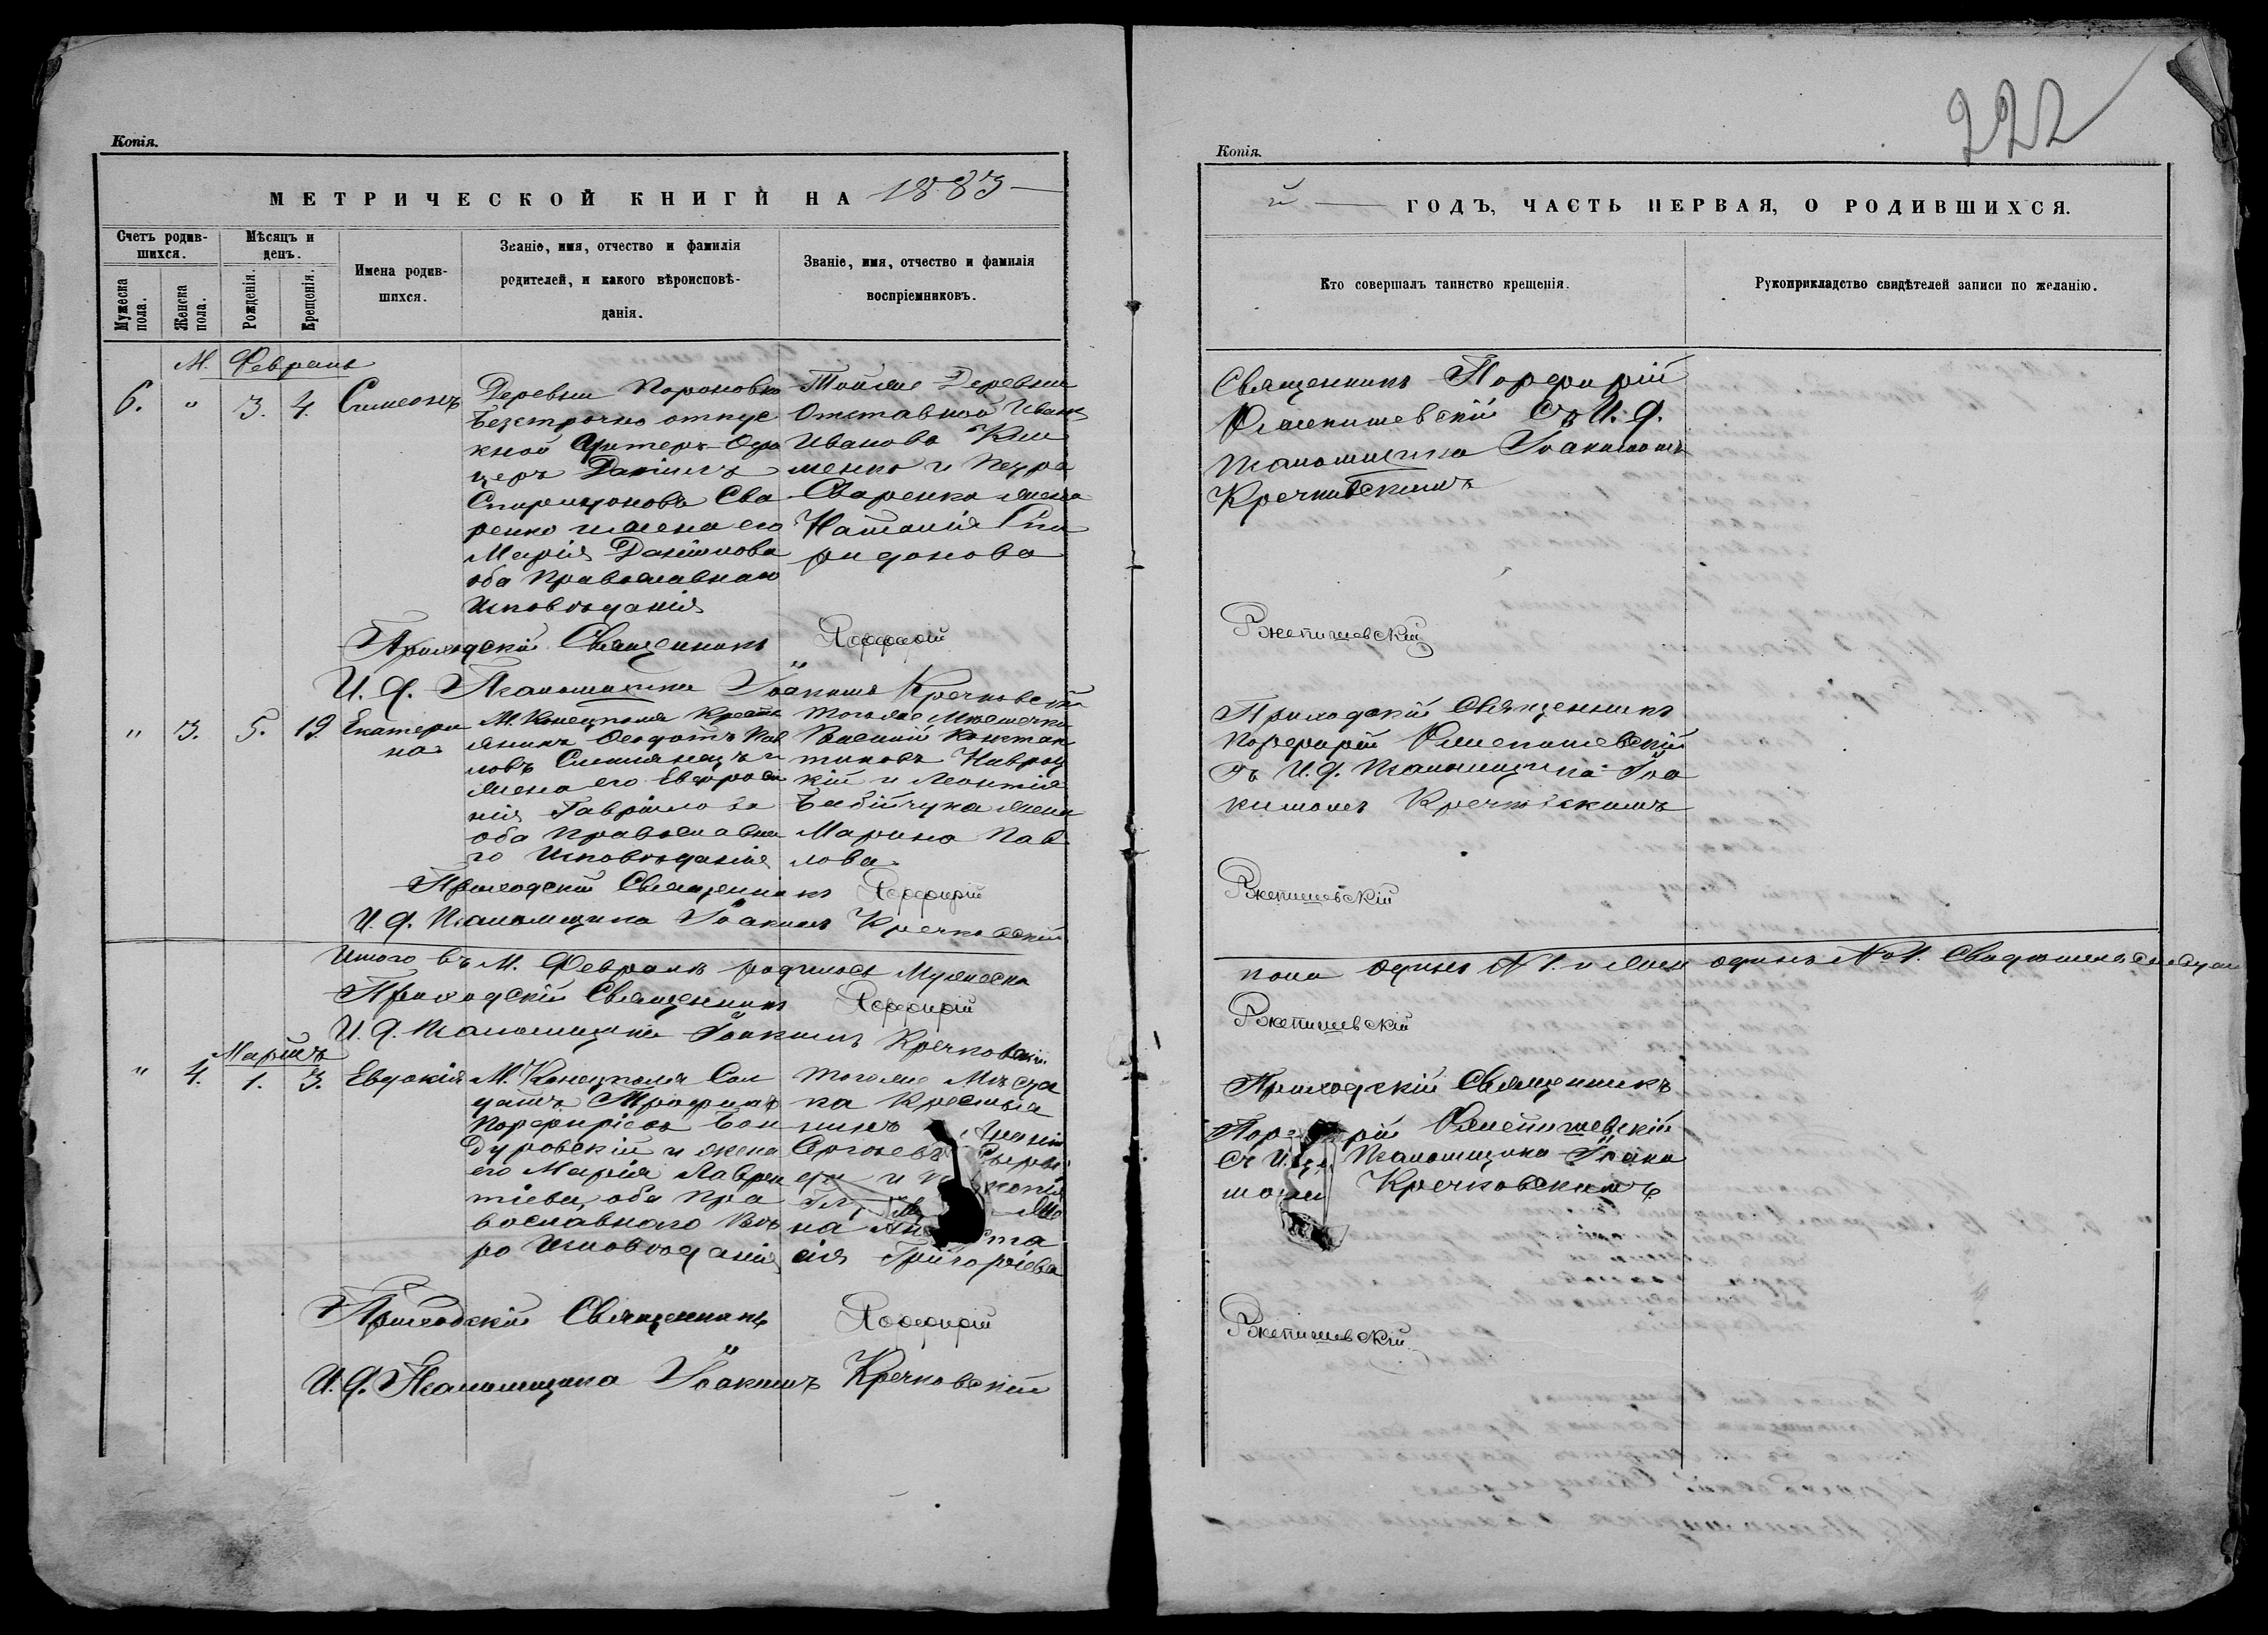 Копія.
МЕТРИЧЕСКОЙ КНИГИ НА 1883
Счетъ родив-
шихся.
Мѣсяцъ и
день.
Имена родив-
шихся.
Званіе, имя, отчество и фамилія
родителей, и какого вѣроисповѣ-
данія.
Званіе, имя, отчество и фамилія
воспріемниковъ.
Мужеска
пола.
Женска
пола.
Рожденія.
Крещенія.
М. Февраль
6. " 3. 4. Симеонъ
Деревни
безсрочно отпус
кной Унтеръ-Офи
церъ Даніилъ
Спиридоновъ Сва
ренко и жена его
Марія
оба Православнаго
Исповѣданія
Тойже Деревни
Отставной Иванъ
Ивановъ Кли
менко и Петра
Сваренко жена
Наталія Спи
ридонова
Приходскій Священникъ Порфирій
И. д. Псаломщика Іоакимъ Кречковскій
" 3. 5. 19. Екатери
на
М. Конецполя Кресть
янинъ Ѳеодотъ Пав
ловъ и
жена его Евфроси
нія Гавріилова
оба Православна
го Исповѣданія
Тогоже Мѣстечка
Василій Констан
тиновъ Навроц
кій и Леонтія
Бабійчука жена
Марина Пав
лова
Приходскій Священникъ Порфирій
И. д. Псаломщика Іоакимъ Кречковскій
Итого въ М. Февралѣ родилось Мужеска
Приходскій Священникъ Порфирій
И. д. Псаломщика Іоакимъ Кречковскій
Мартъ
" 4. 1. 3. Евдокія
М. Конецполя Сол
датъ Трофимъ
Порфиріевъ Бон
дуровскій и жена
его Марія Лаврен
тіева, оба Пра
вославнаго Вѣ
ро Исповѣданія
Тогоже Мѣстеч
ка Крестья
нинъ
и
на
сія Григоріева
Приходскій Священникъ Порфирій
И. д. Псаломщика Іоакимъ Кречковскій
222
Копія.
й ГОДЪ, ЧАСТЬ ПЕРВАЯ, О РОДИВШИХСЯ.
Кто совершалъ таинство крещенія.
Рукоприкладство свидѣтелей записи по желанію.
Священникъ Порфирій
Ржепишевскій съ И. д.
Псаломщика Іоакимомъ
Кречковскимъ
Ржепишевскій
Приходскій Священникъ
Порфирій Ржепишевскій
съ И. д. Псаломщика Іоа
кимомъ Кречковскимъ
Ржепишевскій
пола одинъ № 1. и Жен один № 1.
Ржепишевскій
Приходскій Священникъ
Порфирій Ржепишевскій
съ И. д. Псаломщика Іоаки
момъ Кречковскимъ
Ржепишевскій